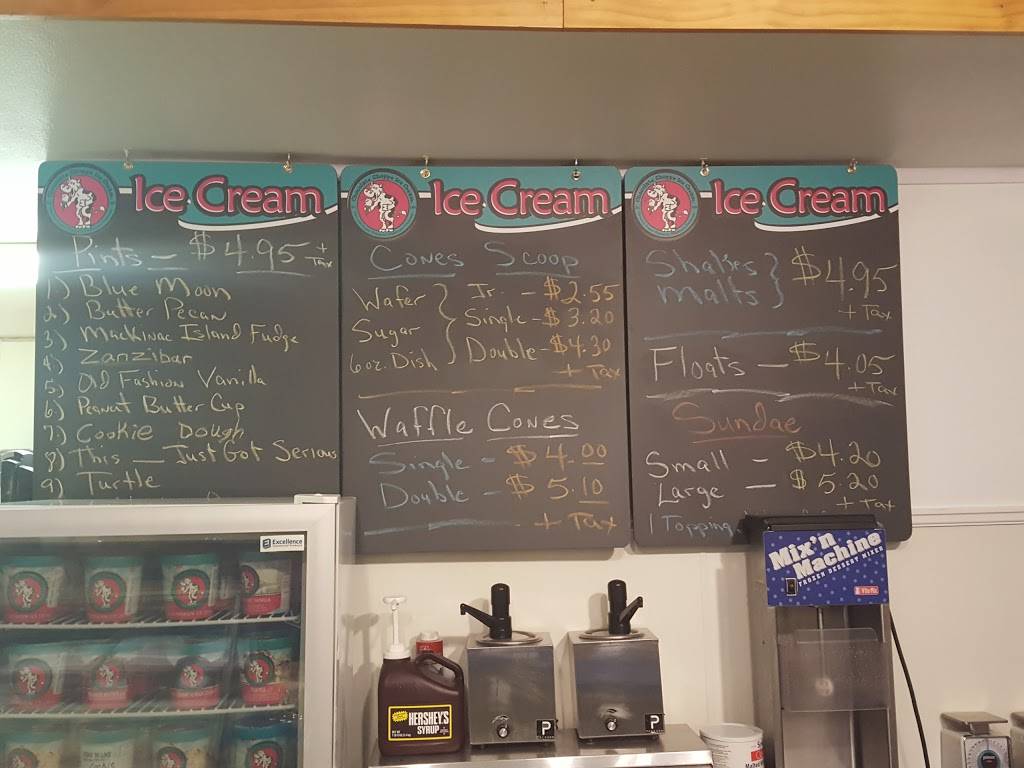 Ice Cream
Pints - $4.95 + Tax
1) Blue Moon
2) Butter Pecan
3) Mackinac Island Fudge
4) Zanzibar
5) Old Fashion Vanilla
6) Peanut Butter Cup
7) Cookie Dough
8) This - Just Got Serious
9) Turtle
Ice Cream
Cones Scoop
Wafer
Sugar
6oz. Dish
Jr. - $2.55
Single - $3.20
Double - $4.30
+ Tax
Waffle Cones
Single - $4.00
Double - $5.10
+ Tax
Ice Cream
Shakes
Malts
$4.95
+ Tax
Floats - $4.05
+ Tax
Sundae
Small - $4.20
Large - $5.20
+ Tax
1 Topping
Excellence
HERSHEY'S
SYRUP
P
P
Mix'n
Machine
FROZEN DESSERT MIXER
Vita-Mix